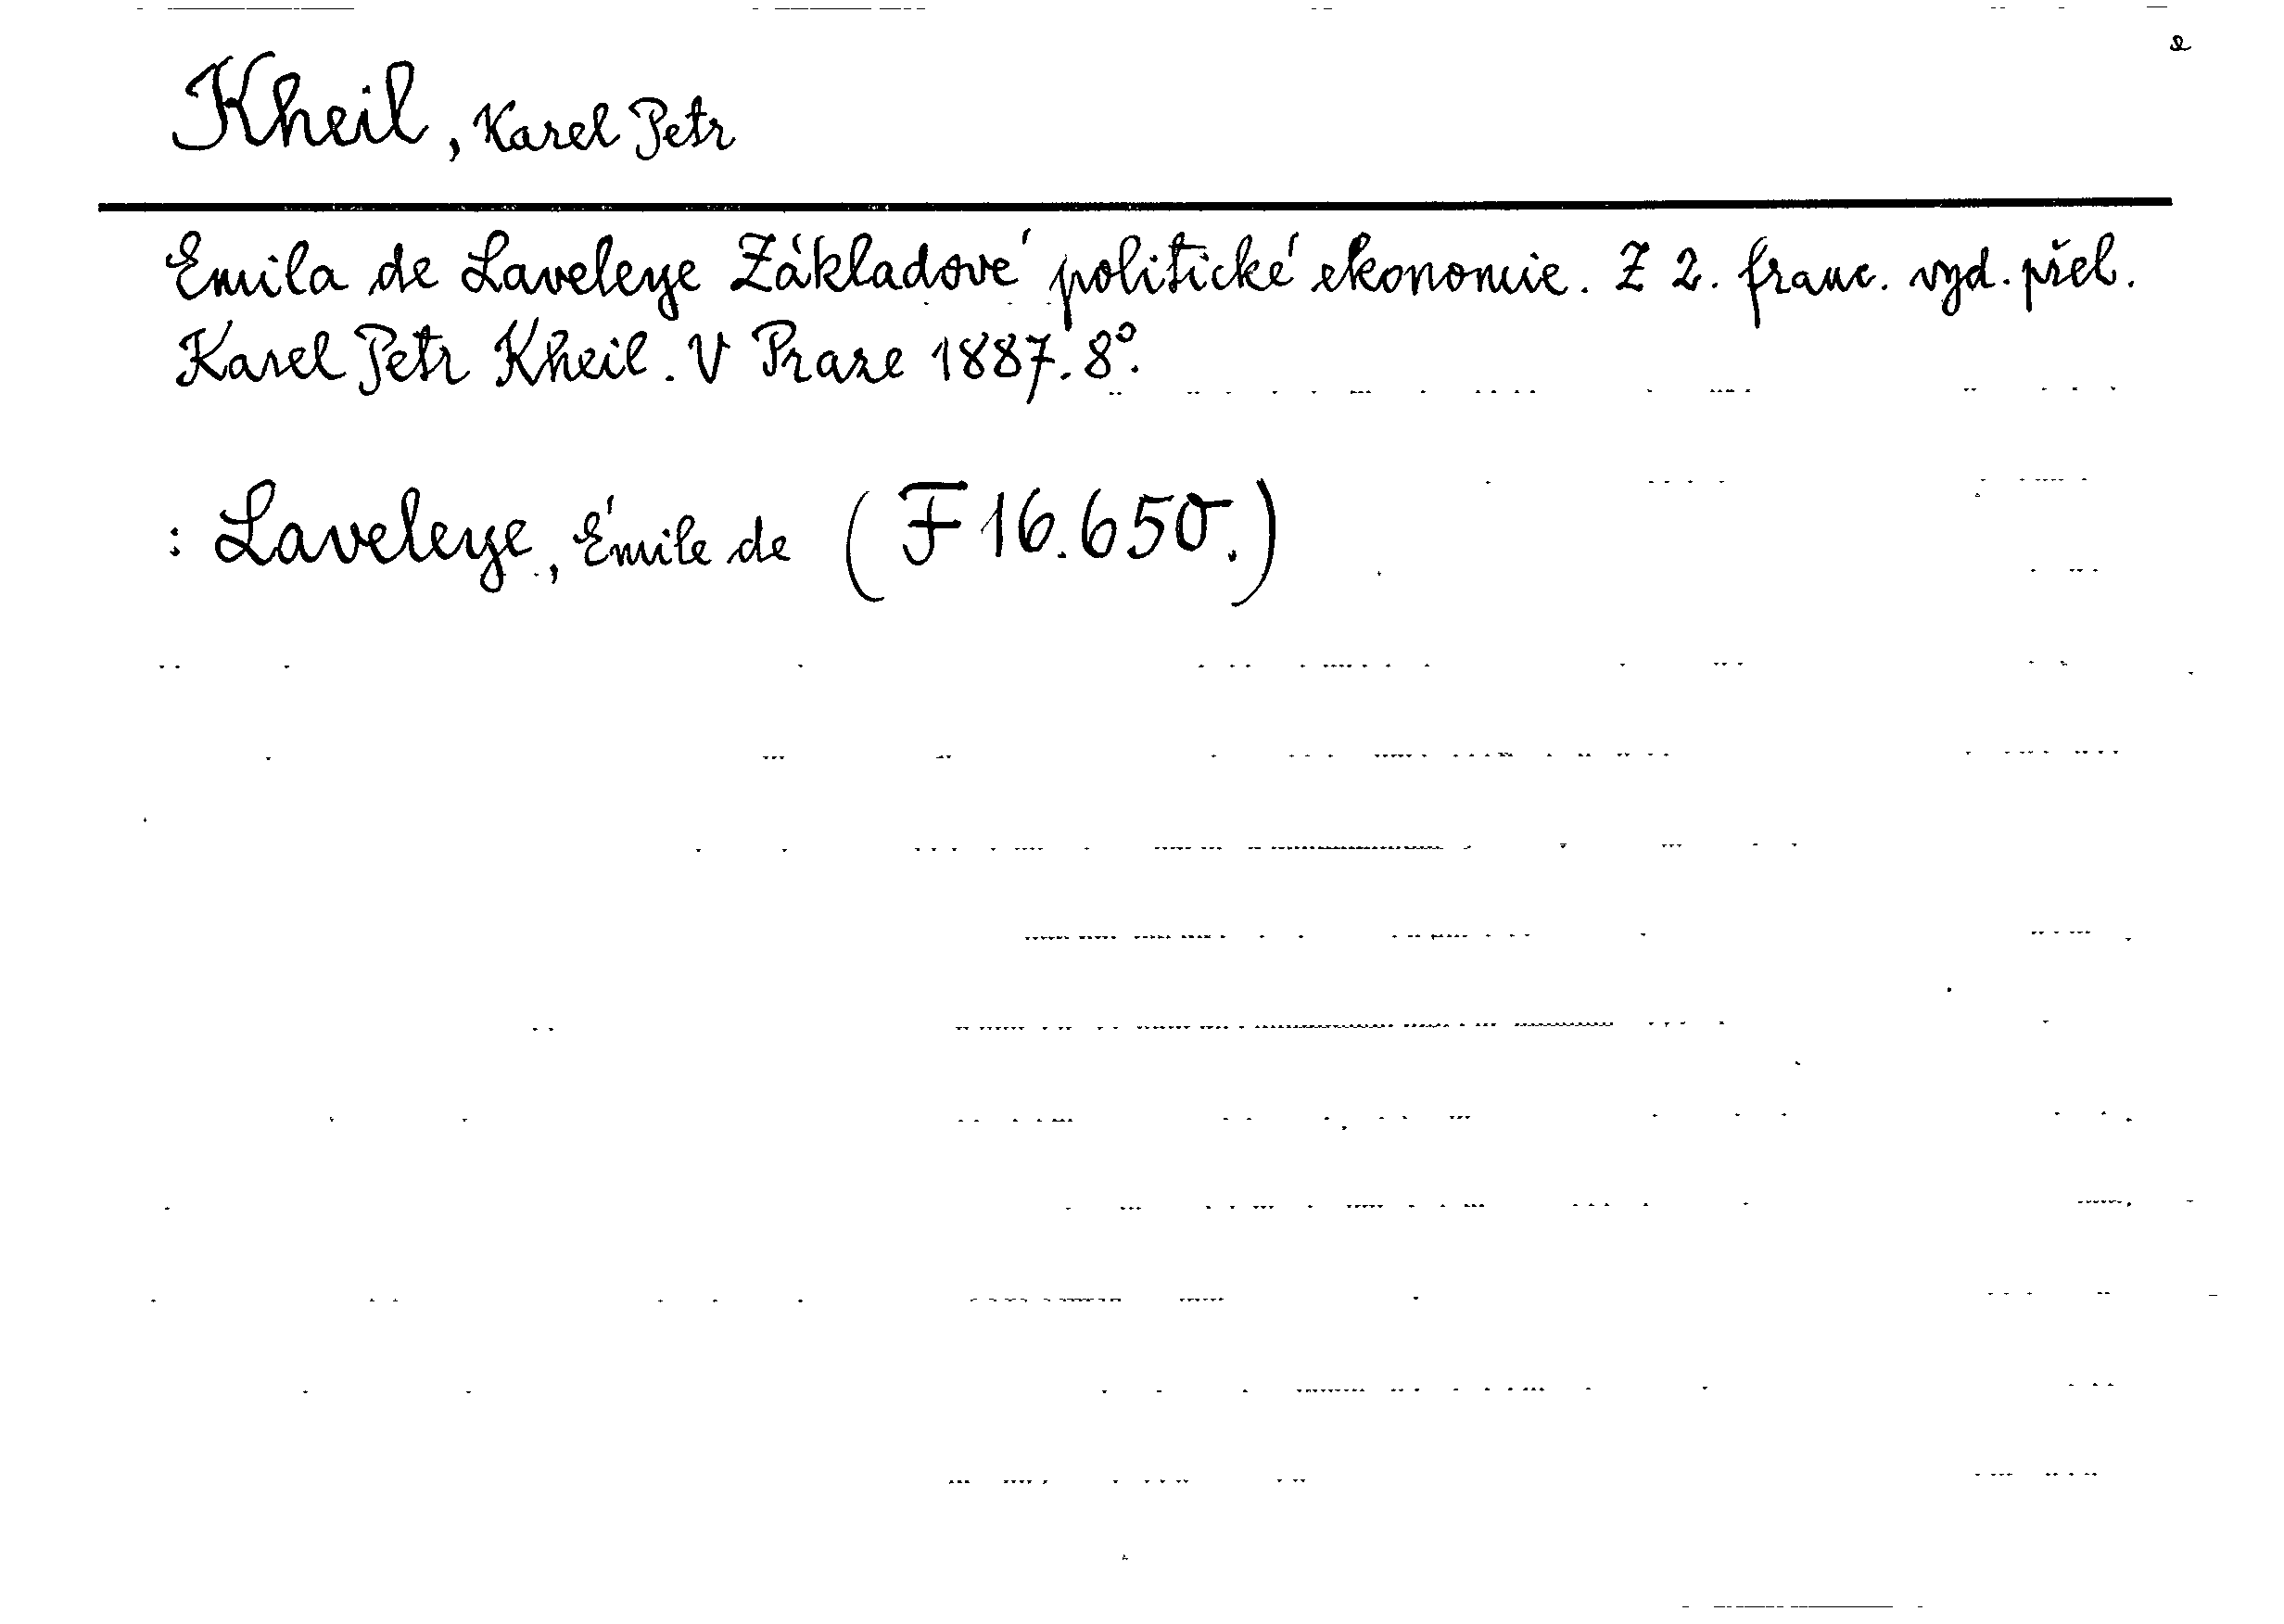 Kheil, Karel Petr
Emila de Laveleye Základové politické ekonomie. Z 2. franc. vyd. přel.
Karel Petr Kheil. V Praze 1887. 8°.
: Laveleye, Émile de (F 16.650.)